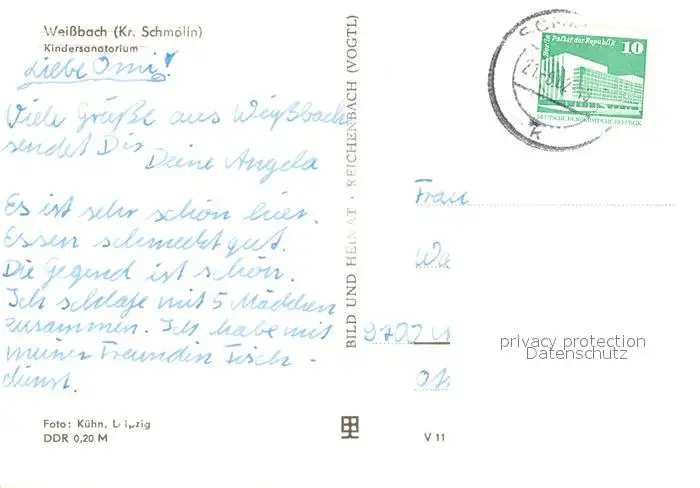 Weißbach (Kr. Schmölln)
Kindersanatorium
Liebe Omi!
Viele Grüße aus Weißbach
sendet Dir
Deine Angela
Es ist sehr schön hier.
Essen schmeckt gut.
Die Gegend ist schön.
Ich schlafe mit 5 Mädchen
zusammen. Ich habe mit
meiner Freundin Tisch-
dienst.
Foto: Kühn, Leipzig
DDR 0,20 M
BILD UND HEIMAT · REICHENBACH (VOGTL)
V 11
Berlin Palast der Republik
10
DEUTSCHE DEMOKRATISCHE REPUBLIK
k
Frau
privacy protection
Datenschutz